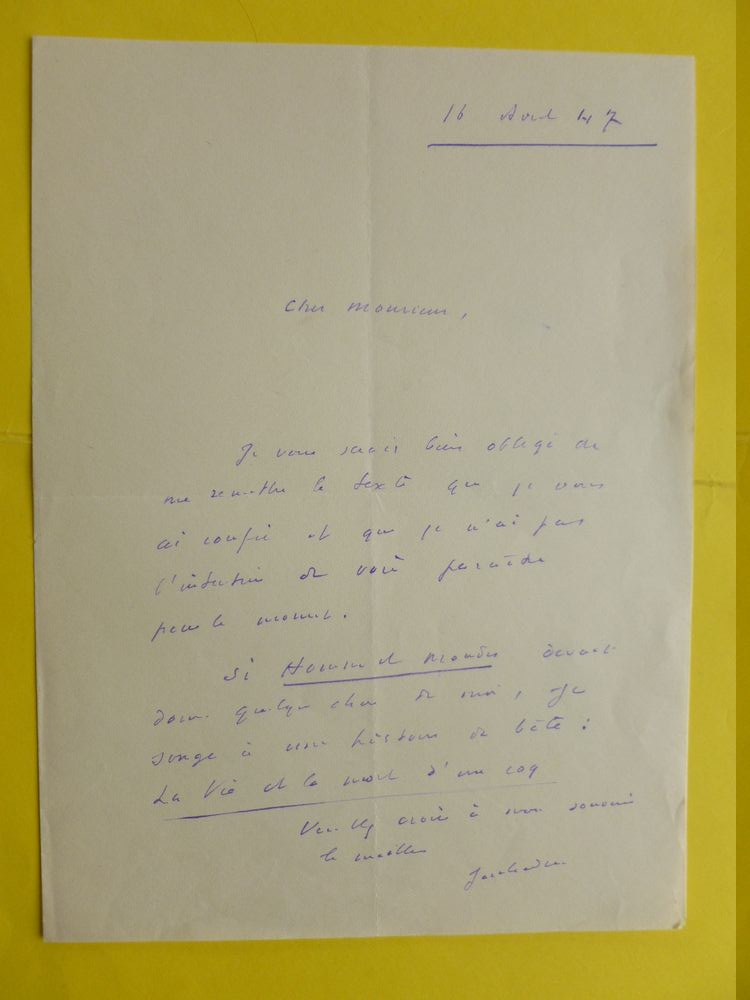 16 Avril 47
Cher Monsieur,
Je vous serais bien obligé de
me remettre le texte que je vous
ai confié et que je n'ai pas
l'intention de voir paraître
pour le moment.
Si Hommes et Mondes devait
donner quelque chose de moi, je
songe à une histoire de bête :
La Vie et la mort d'un coq
Veuillez croire à mon souvenir
le meilleur
Jouhandeau